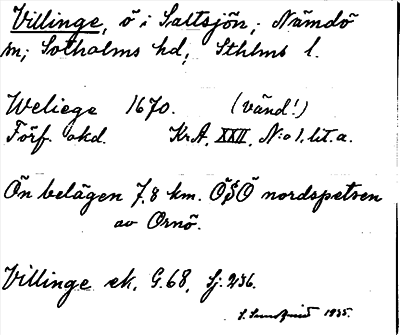 Villinge, ö i Saltsjön, Nämdö
sn; Sotholms hd, Sthlms l.
Weliege 1670. (vänd!)
Förf. okd. Kr.A, XXII, N:o 1. lit. a.
Ön belägen 7,8 km. OSO nordspetsen
av Ornö.
Villinge ek. G.68, Sj. 236.
1935.